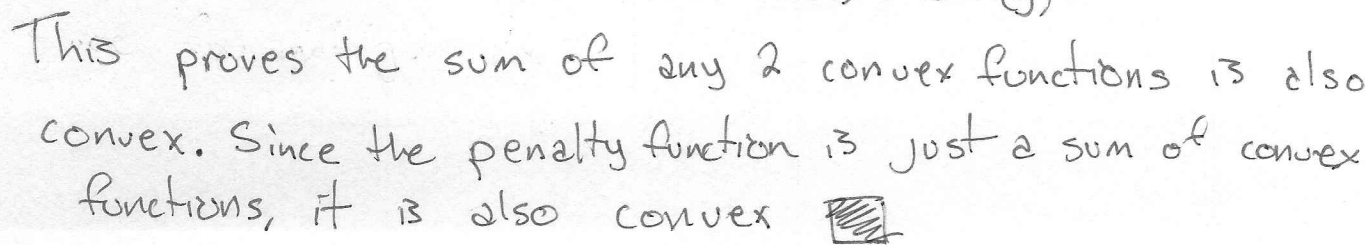 This proves the sum of any 2 convex functions is also
convex. Since the penalty function is just a sum of convex
functions, it is also convex